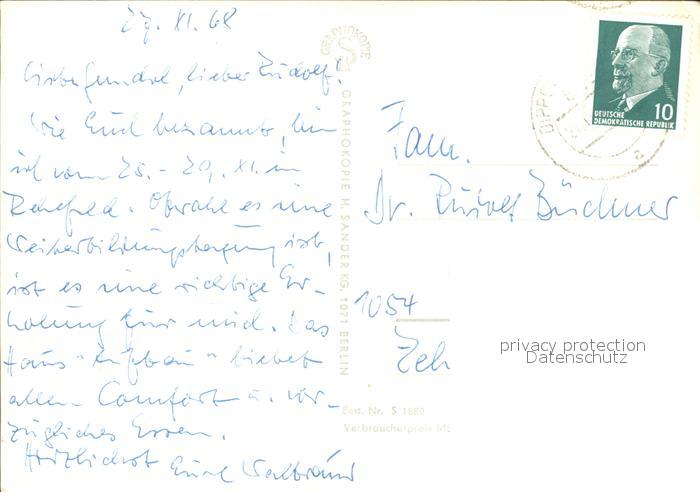 27. XI. 68
Liebe Gundel, lieber Rudolf!
Wie Euch bekannt, bin
ich vom 25. - 29. XI. in
Rehefeld. Obwohl es eine
Weiterbildungstagung ist,
ist es eine richtige Er-
holung für mich. Das
Haus "Aufbau" bietet
allen Comfort u. vor-
zügliches Essen.
Herzlichst Eure
GRAPHOKOPIE
GRAPHOKOPIE H. SANDER KG, 1071 BERLIN
DIPPO
10
DEUTSCHE
DEMOKRATISCHE REPUBLIK
a
Fam.
Dr. Rudolf Büchner
1054
Zeh
privacy protection
Datenschutz
Best.-Nr. S 1880
Verbraucherpreis M